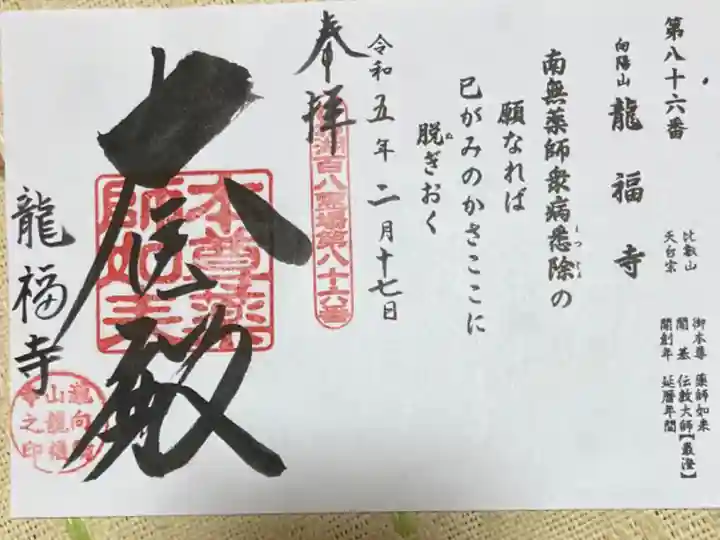 第八十六番
向陽山 龍福寺
比叡山
天台宗
御本尊 薬師如来
開基 伝教大師【最澄】
開創年 延暦年間
南無薬師衆病悉除の
願なれば
已がみのかさここに
脱ぎおく
令和五年二月十七日
奉拝
百八霊場第八十六番
本尊薬
師如来
龍福寺